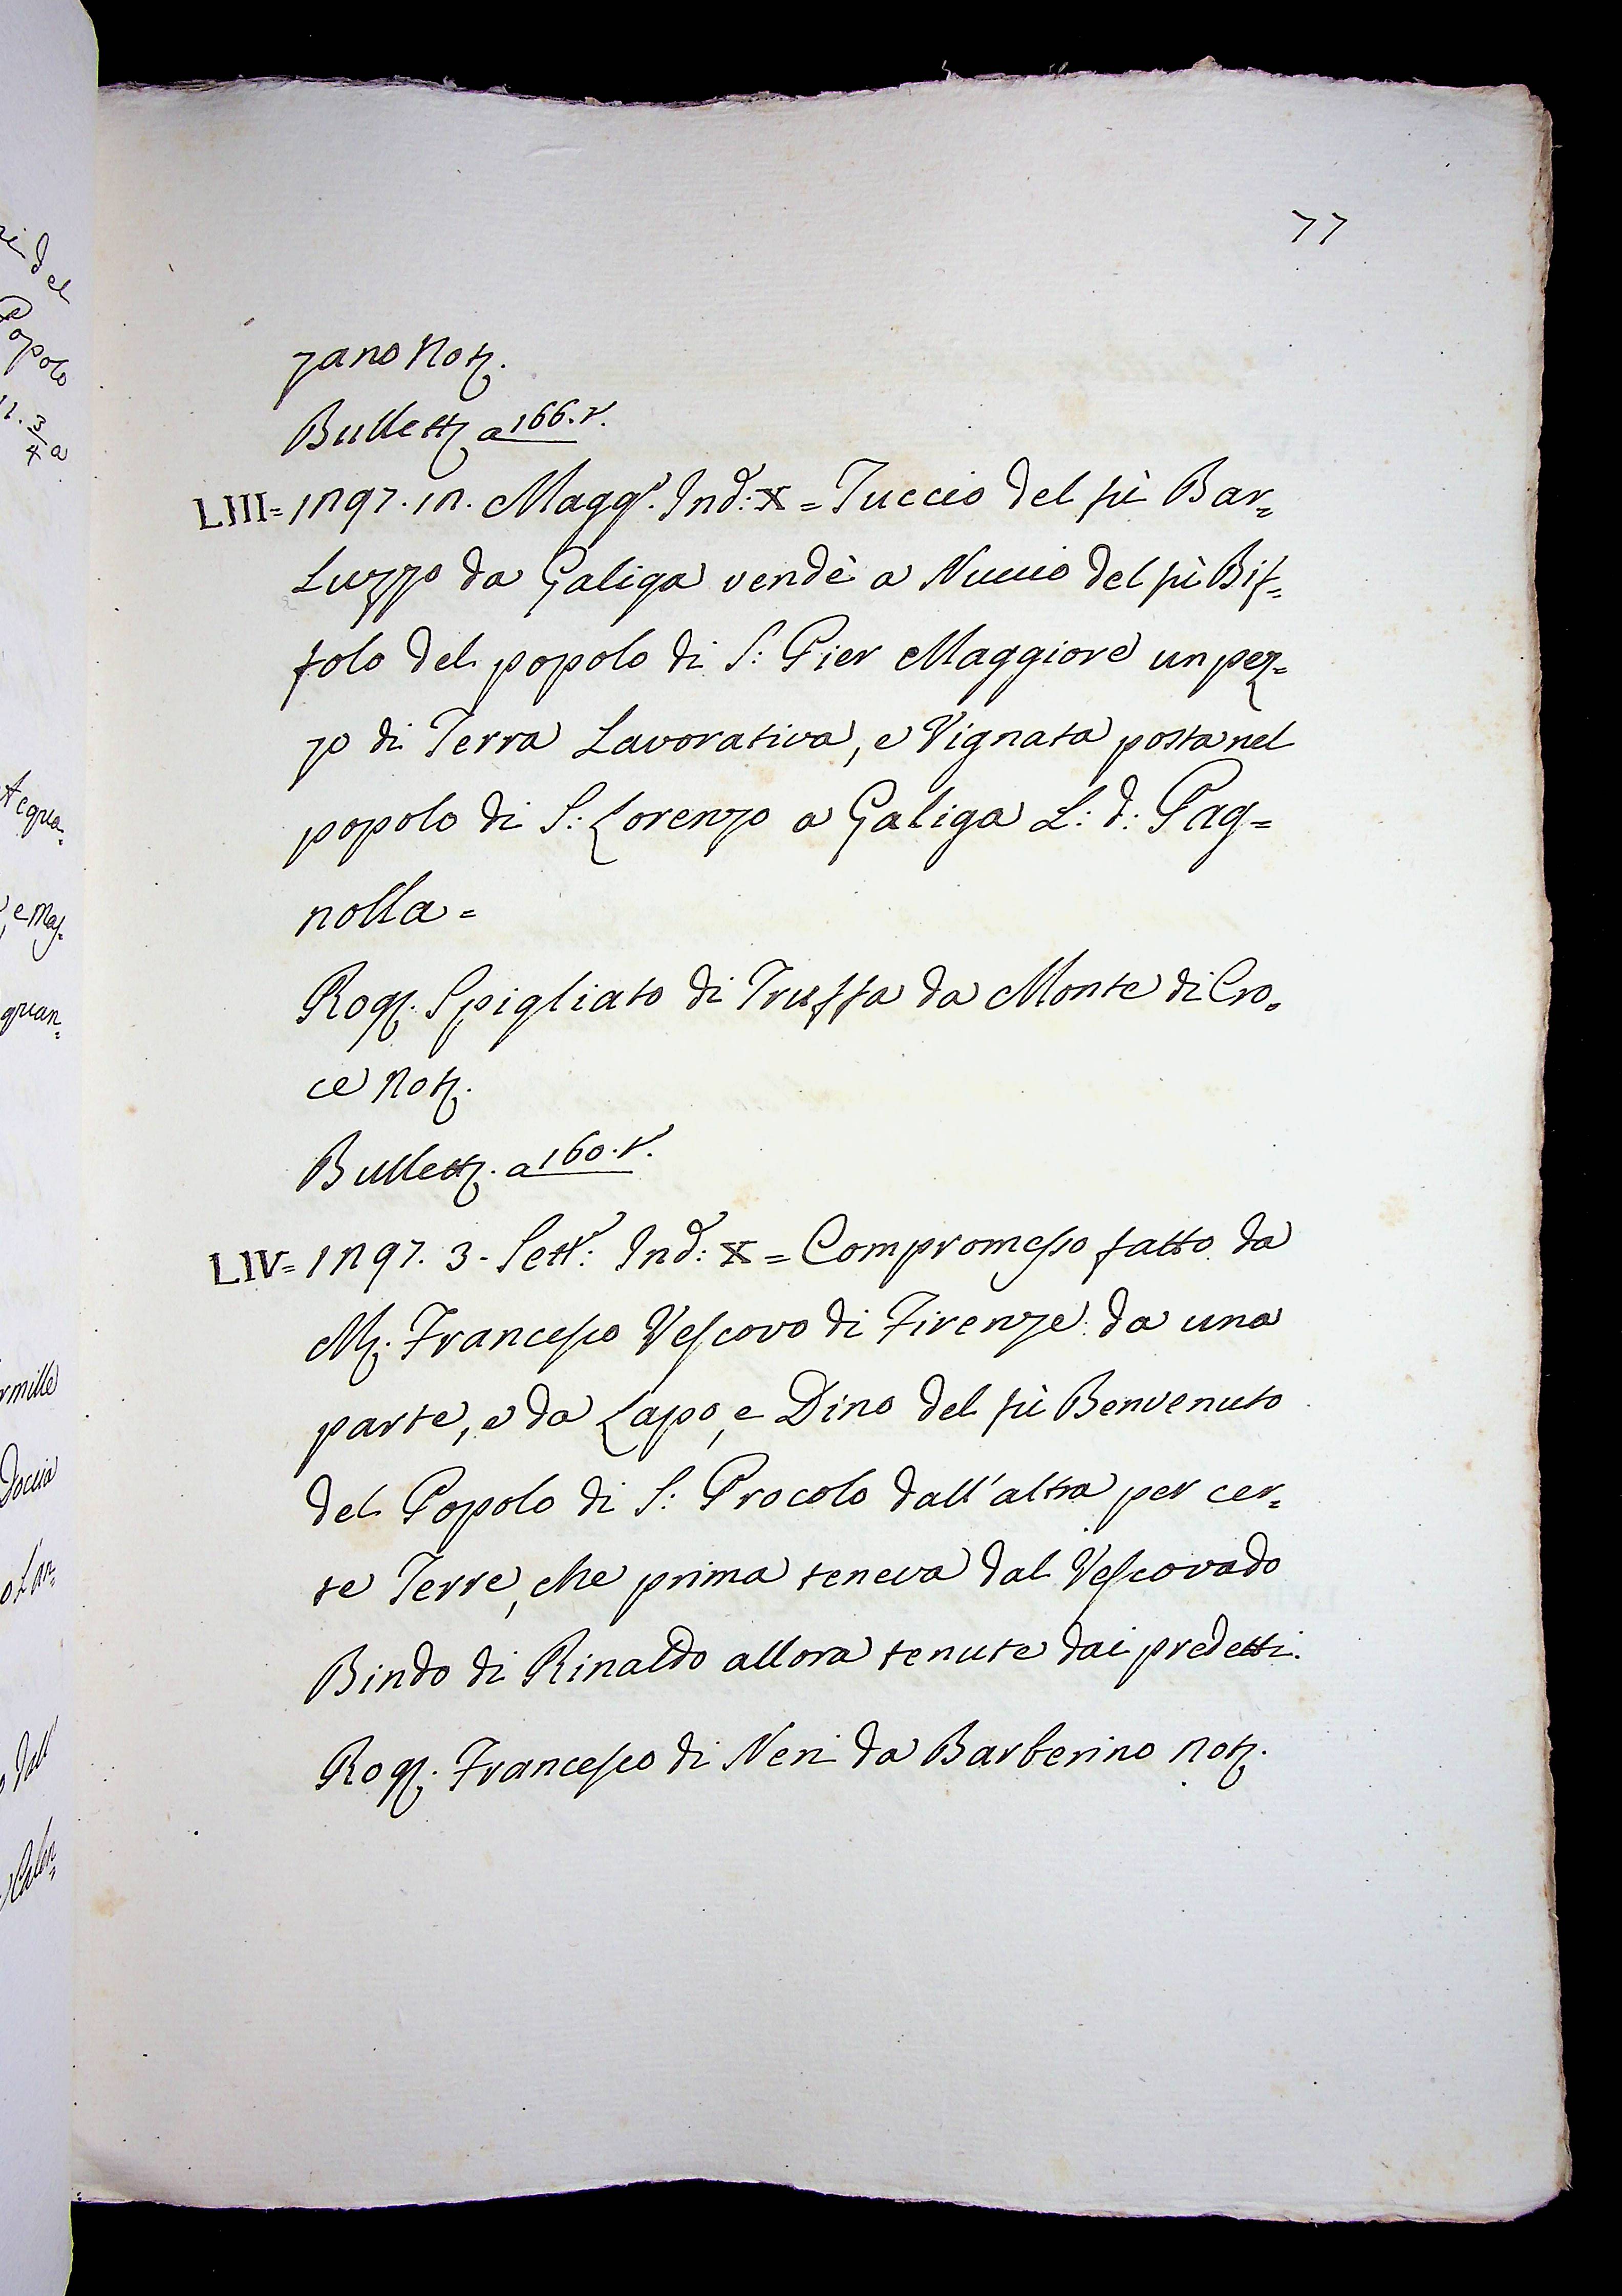 del
Popolo
3/4 a
Acqua=
, e Mas=
quan=
rmille
Doccia
dall'
Calen=
77
zano Not.
Bullett. a 166. r.
LIII = 1297. 12. Magg.° Ind: X = Tuccio del fù Bar=
Luzzo da Galiga vendè a Nuccio del fù Bif=
folo del popolo di S: Pier Maggiore un pez=
zo di Terra Lavorativa, e Vignata posta nel
popolo di S: Lorenzo a Galiga L: d: Pag=
nolla =
Rog. Spigliato di Truffa da Monte di Cro=
ce Not.
Bullett. a 160. r.
LIV = 1297. 3. Sett.e: Ind: X = Compromesso fatto da
M. Francesco Vescovo di Firenze da una
parte, e da Lapo, e Dino del fù Benvenuto
del Popolo di S: Procolo dall'altra per cer=
te Terre, che prima teneva dal Vescovado
Bindo di Rinaldo allora tenute dai predetti.
Rog. Francesco di Neri da Barberino Not.